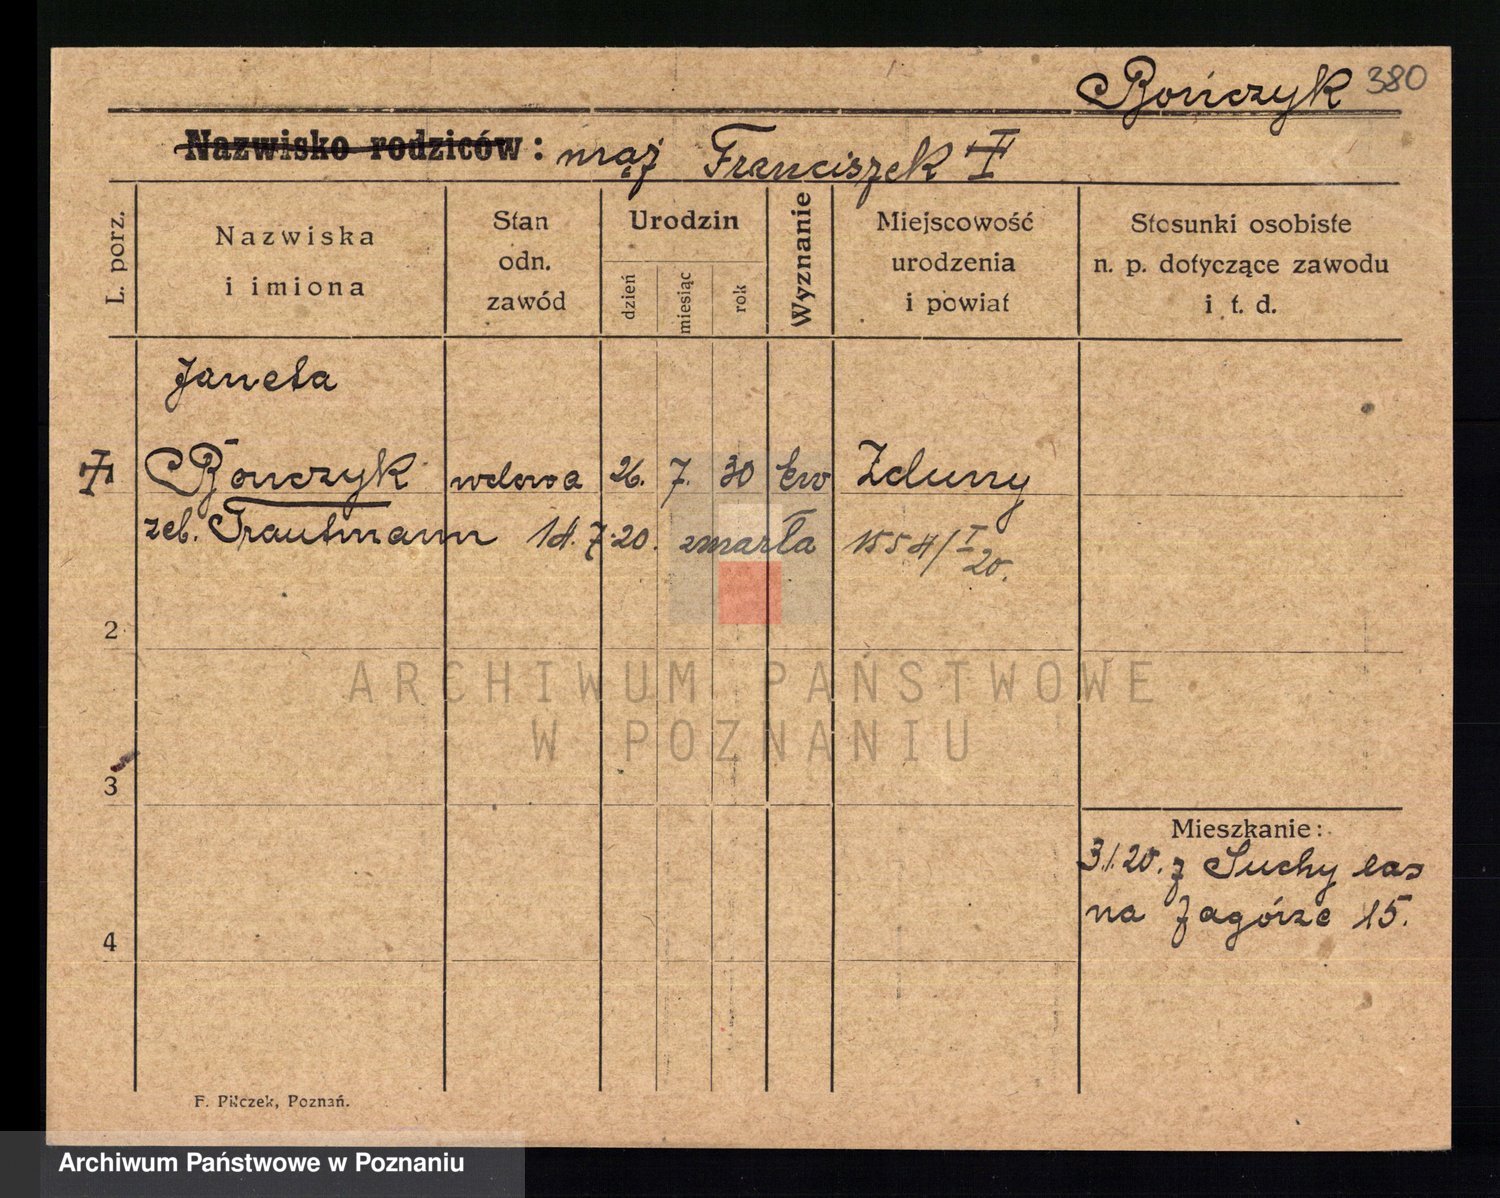 Bończyk 380
Nazwisko rodziców: mąż Franciszek
L. porz.
Nazwiska i imiona
Stan odn. zawód
Urodzin
dzień
miesiąc
rok
Wyznanie
Miejscowość urodzenia i powiat
Stosunki osobiste n. p. dotyczące zawodu i t. d.
Janeta
Bończyk wdowa 26. 7. 30 Ew Zduny
zeb. Trautmann 14. 7. 20. zmarła 1554/I 20.
2
3
4
Mieszkanie:
3.1.20. z Suchy las
na Zagórze 15.
F. Pilczek, Poznań.
ARCHIWUM PAŃSTWOWE
W POZNANIU
Archiwum Państwowe w Poznaniu